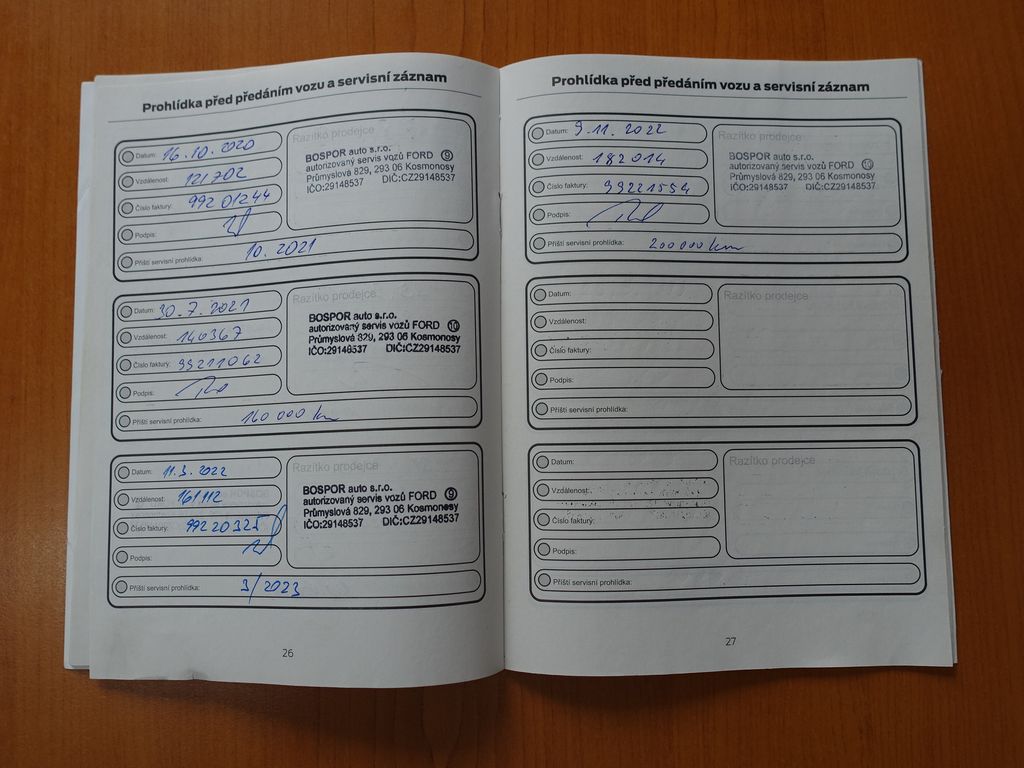 Prohlídka před předáním vozu a servisní záznam
Datum: 16.10.2020
Vzdálenost: 121702
Číslo faktury: 99201244
Podpis:
Příští servisní prohlídka: 10.2021
Razítko prodejce
BOSPOR auto s.r.o.
autorizovaný servis vozů FORD 9
Průmyslová 829, 293 06 Kosmonosy
IČO:29148537 DIČ:CZ29148537
Datum: 30.7.2021
Vzdálenost: 140367
Číslo faktury: 99211062
Podpis:
Příští servisní prohlídka: 160 000 km
Razítko prodejce
BOSPOR auto s.r.o.
autorizovaný servis vozů FORD 10
Průmyslová 829, 293 06 Kosmonosy
IČO:29148537 DIČ:CZ29148537
Datum: 11.3.2022
Vzdálenost: 161112
Číslo faktury: 99220325
Podpis:
Příští servisní prohlídka: 3/2023
Razítko prodejce
BOSPOR auto s.r.o.
autorizovaný servis vozů FORD 9
Průmyslová 829, 293 06 Kosmonosy
IČO:29148537 DIČ:CZ29148537
26
Prohlídka před předáním vozu a servisní záznam
Datum: 9.11.2022
Vzdálenost: 182014
Číslo faktury: 99221554
Podpis:
Příští servisní prohlídka: 200 000 km
Razítko prodejce
BOSPOR auto s.r.o.
autorizovaný servis vozů FORD 10
Průmyslová 829, 293 06 Kosmonosy
IČO:29148537 DIČ:CZ29148537
Datum:
Vzdálenost:
Číslo faktury:
Podpis:
Příští servisní prohlídka:
Razítko prodejce
Datum:
Vzdálenost:
Číslo faktury:
Podpis:
Příští servisní prohlídka:
Razítko prodejce
27